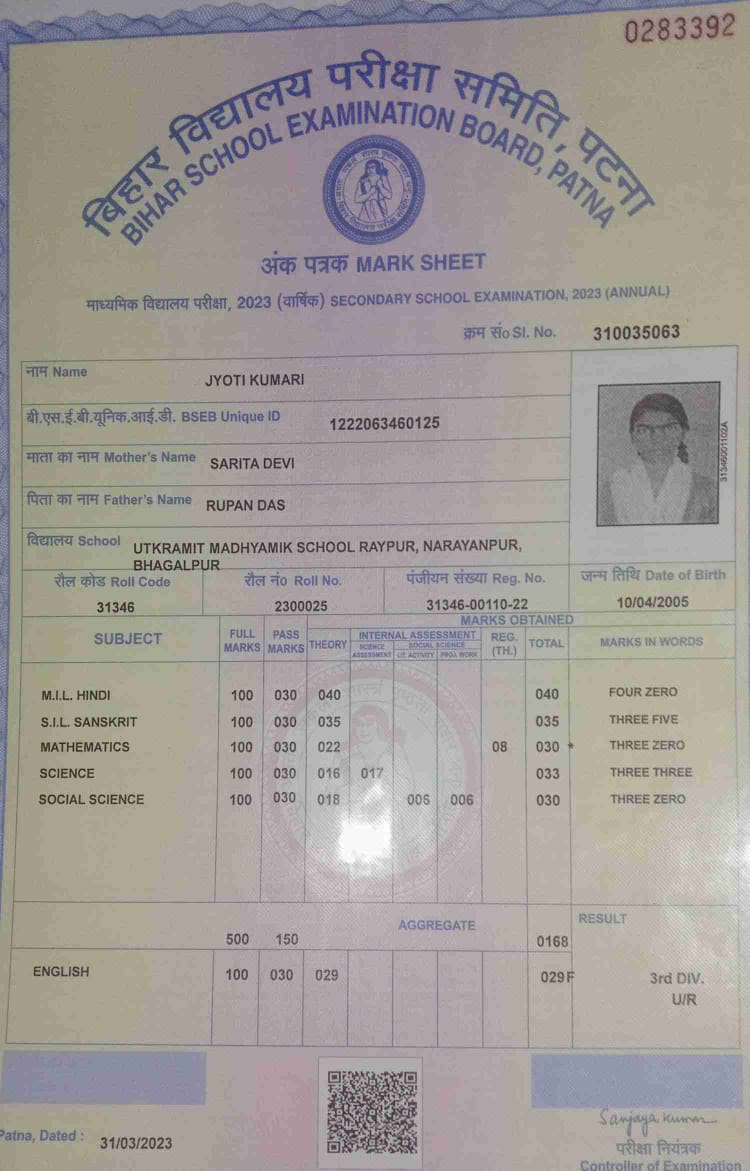 0283392
बिहार विद्यालय परीक्षा समिति, पटना
BIHAR SCHOOL EXAMINATION BOARD, PATNA
अंक पत्रक MARK SHEET
माध्यमिक विद्यालय परीक्षा, 2023 (वार्षिक) SECONDARY SCHOOL EXAMINATION, 2023 (ANNUAL)
क्रम सं० Sl. No. 310035063
नाम Name JYOTI KUMARI
बी.एस.ई.बी.यूनिक.आई.डी. BSEB Unique ID 1222063460125
माता का नाम Mother's Name SARITA DEVI
पिता का नाम Father's Name RUPAN DAS
31346001102A
विद्यालय School UTKRAMIT MADHYAMIK SCHOOL RAYPUR, NARAYANPUR,
BHAGALPUR
रौल कोड Roll Code रौल नं० Roll No. पंजीयन संख्या Reg. No. जन्म तिथि Date of Birth
31346 2300025 31346-00110-22 10/04/2005
MARKS OBTAINED
SUBJECT FULL MARKS PASS MARKS THEORY INTERNAL ASSESSMENT REG. (TH.) TOTAL MARKS IN WORDS
SCIENCE ASSESSMENT SOCIAL SCIENCE
LIT. ACTIVITY PROJ. WORK
M.I.L. HINDI 100 030 040 040 FOUR ZERO
S.I.L. SANSKRIT 100 030 035 035 THREE FIVE
MATHEMATICS 100 030 022 08 030 * THREE ZERO
SCIENCE 100 030 016 017 033 THREE THREE
SOCIAL SCIENCE 100 030 018 006 006 030 THREE ZERO
AGGREGATE RESULT
500 150 0168
ENGLISH 100 030 029 029F 3rd DIV.
U/R
Patna, Dated : 31/03/2023
Sanjaya Kumar
परीक्षा नियंत्रक
Controller of Examination